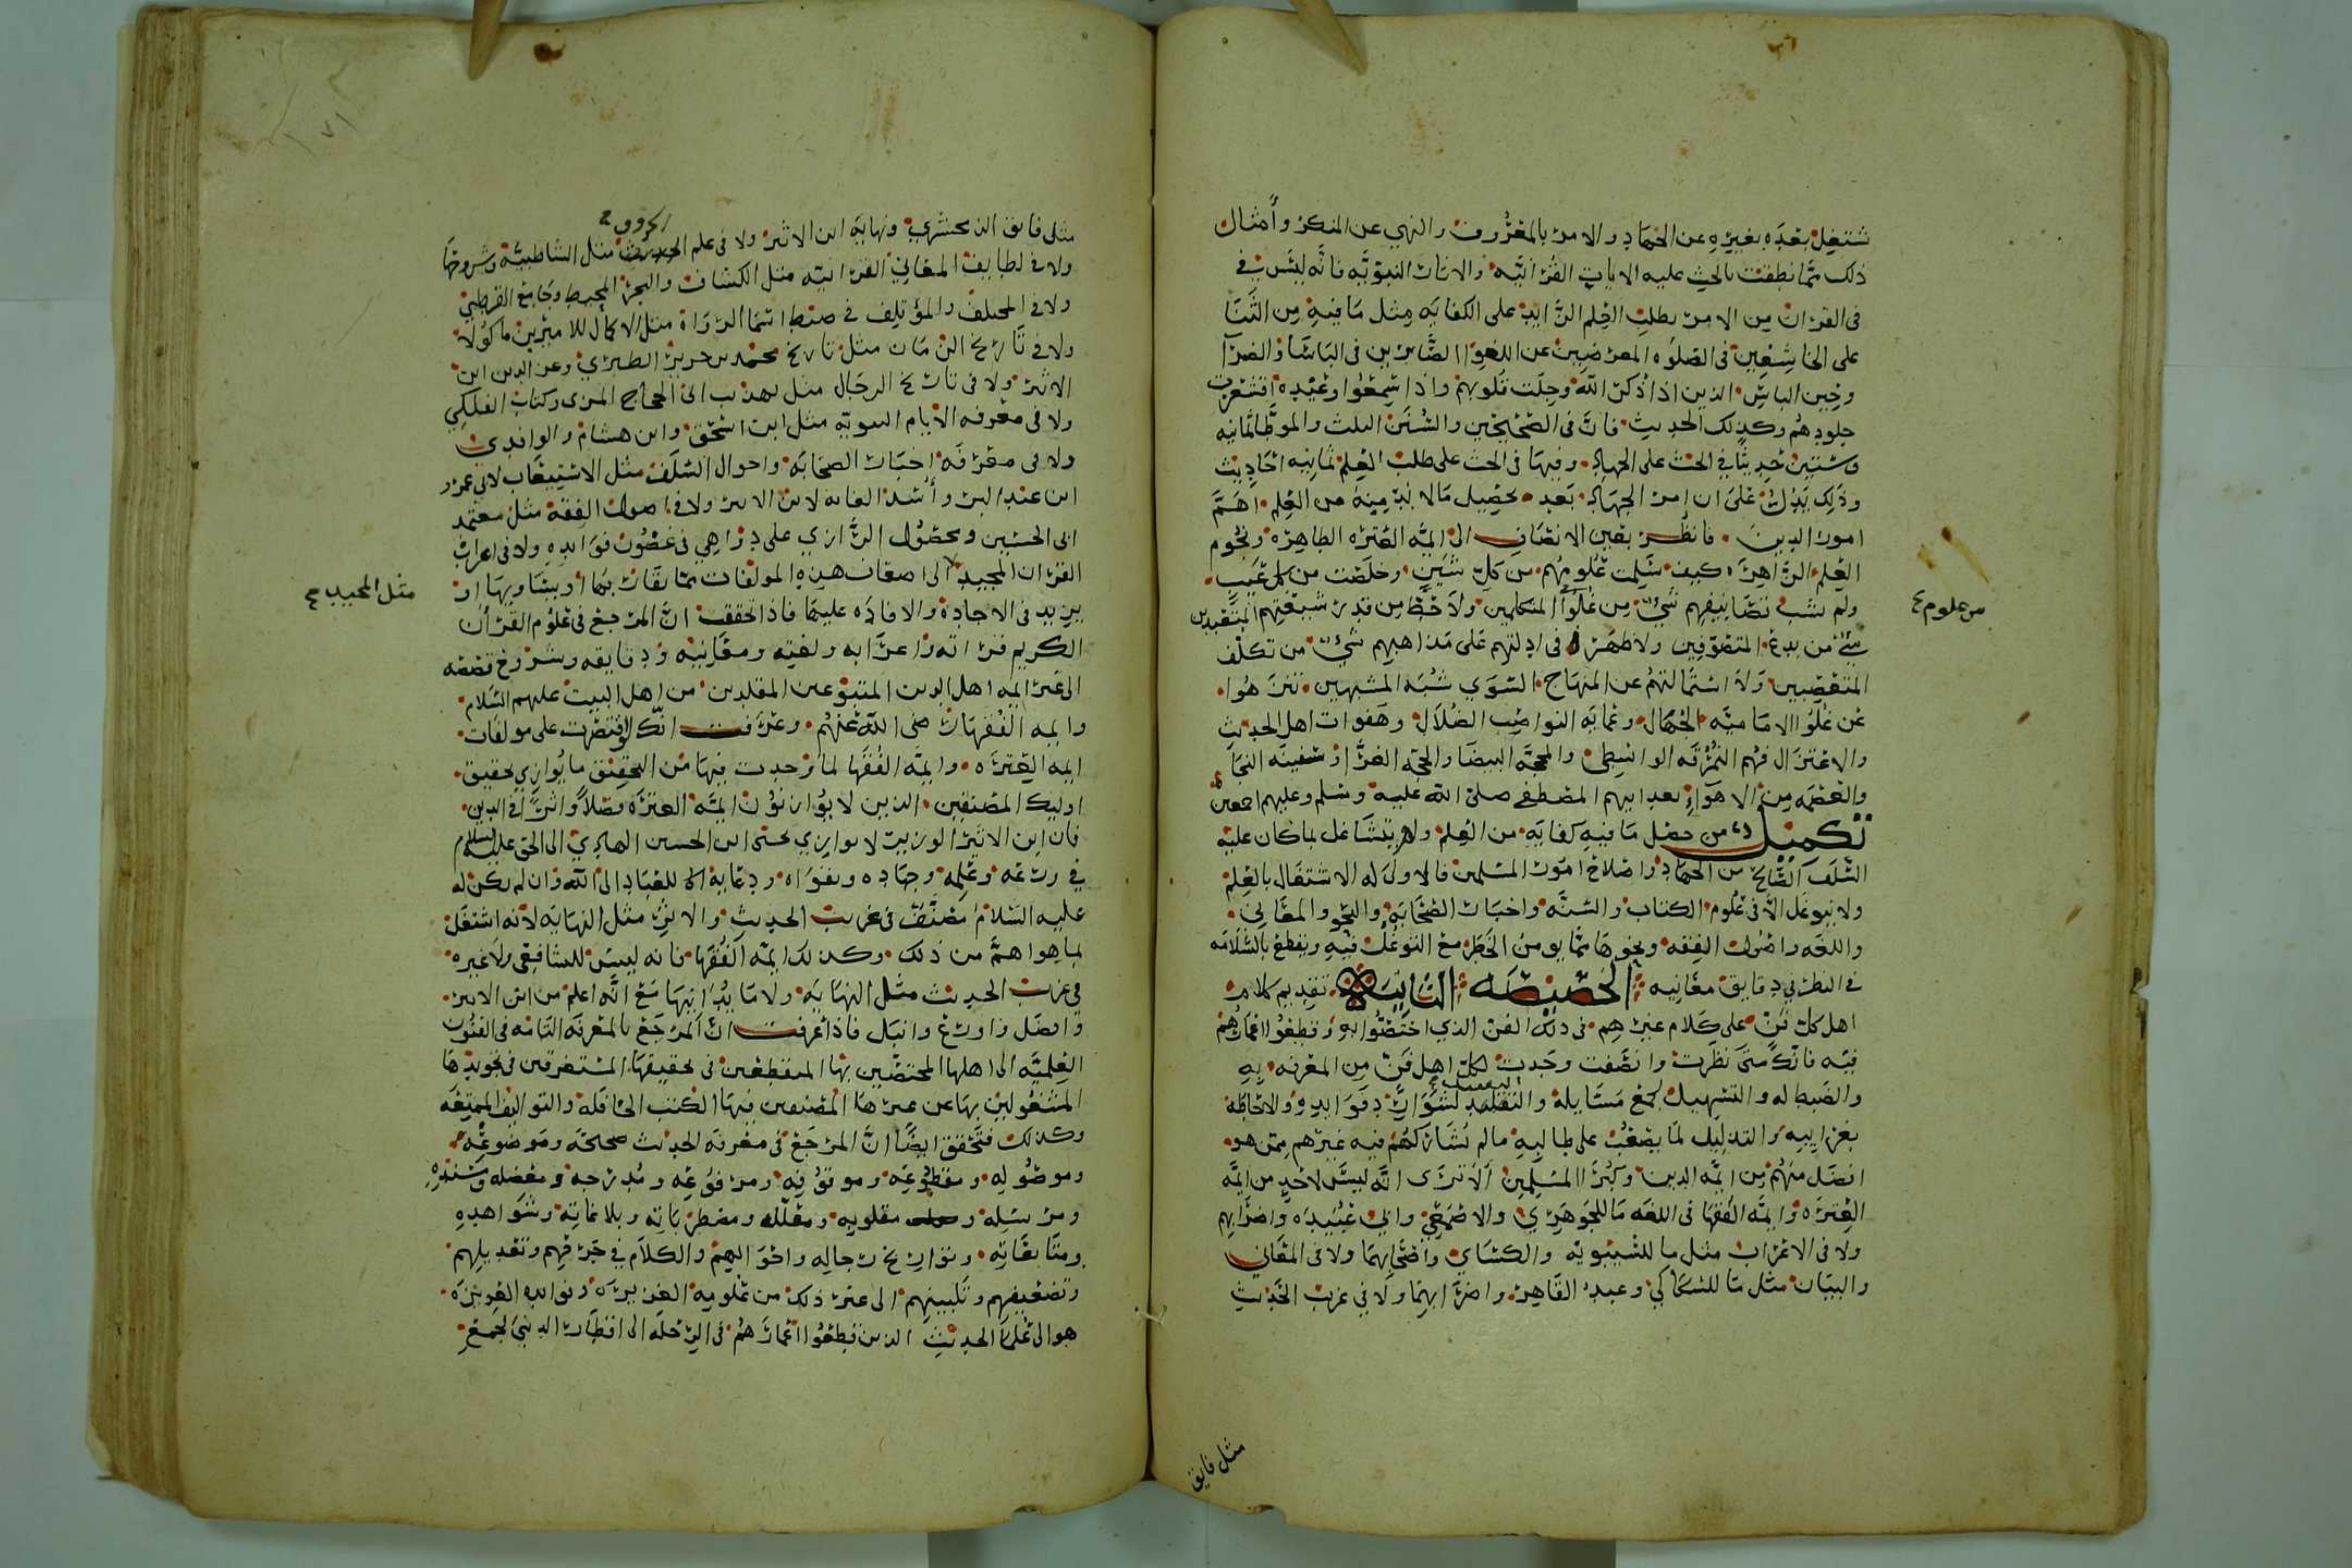 شتغل بعده بغيره عن الجهاد والامر بالمعروف والنهي عن المنكر وأمثال
ذلك مما نطقت بالحث عليه الايات القرانيه والاثار النبويه فانه ليس في
في القران من الامر بطلب العلم الزايد على الكفايه مثل ما فيه من الثنا
على الخاشعين في الصلوه المعرضين عن اللغو الصابرين في الباسا والضرا
وحين الباس الذين اذا ذكر الله وجلت قلوبهم واذا سمعوا وعيده اقشعرت
جلودهم وكذلك الحديث فان في الصحيحين والسنن الثلث والموطا ثمانيه
وستين حديثا في الحث على الجهاد وفيها في الحث على طلب العلم ثمانيه احاديث
وذلك يدل على ان امر الجهاد بعد تحصيل مالا بد منه من العلم اهم
امور الدين فانظر بعين الانصاف الى ايمه العتره الطاهره ونجوم
العلم الزاهره كيف سلمت علومهم من كل شين وخلصت من كل عيب
ولم يشب تصانيفهم شي من غلو المتكلمين ولا حط من قدر شيعتهم المتعبدين
شي من بدع المتصوفين ولا ظهر في ادلتهم على مذاهبهم شي من تكلف
من علوم
المتعصبين ولا استمالتهم عن المنهاج السوي شبه المشبهين تنزهوا
عن غلو الاماميه الجهال وعمايه النواصب الضلال وهفوات اهل الحديث
والاعتزال فهم النمرقه الوسطى والمحجه البيضا والحجه الغرا وسفينه النجا
والعصمه من الاهواء بعد ابيهم المصطفى صلى الله عليه وسلم وعليهم اجمعين
تكميل من حصل ما فيه كفايه من العلم ولم يتشاغل بما كان عليه
السلف الصالح من الجهاد واصلاح امور المسلمين فالاولى له الاشتغال بالعلم
ولا يتوغل الا في علوم الكتاب والسنه واخبار الصحابه والنحو والمعاني
واللغه واصول الفقه ونحوها مما يومن الخطر مع التوغل فيه ويقطع بالسلامه
في النظر في دقايق معانيه الخصيصه الثانيه تقديم كلام
اهل كل فن على كلام غيرهم في ذلك الفن الذي اختصوا به وقطعوا اعمارهم
فيه فانك متى نظرت وانصفت وجدت لكل اهل فن من المعرفه به
والضبط له والتسهيل لجمع مسايله والتقييد لشوارد فوايده والاحاطه
بغرايبه والتذليل لما يصعب على طالبه مالم يشاركهم فيه غيرهم ممن هو
افضل منهم من ايمه الدين وكبرا المسلمين الا ترى انه ليس لاحد من ايمه
العتره وايمه الفقها في اللغه ما للجوهري والاصمعي وابي عبيده واضرابهم
ولا في الاعراب مثل ما لسيبويه والكسائي واصحابهما ولا في المعاني
والبيان مثل ما للسكاكي وعبد القاهر واضرابهما ولا في غريب الحديث
مثل فايق
مثل فايق الزمخشري ونهايه ابن الاثير ولا في علم الحروف مثل الشاطبيه وشروحها
ولا في لطايف المعاني القرانيه مثل الكشاف والبحر المحيط وجامع القرطبي
ولا في المختلف والمؤتلف في ضبط اسما الرواة مثل الاكمال للامير بن ماكولا
ولا في تاريخ الزمان مثل تاريخ محمد بن جرير الطبري وعز الدين ابن
الاثير ولا في تاريخ الرجال مثل تهذيب ابي الحجاج المزي وكتاب الفلكي
ولا في معرفه الايام النبويه مثل ابن اسحق وابن هشام والواقدي
ولا في معرفه اخبار الصحابه واحوال السلف مثل الاستيعاب لابي عمر
ابن عبد البر وأسد الغابه لابن الاثير ولا في اصول الفقه مثل معتمد
ابي الحسين ومحصول الرازي على دواهي في غضون فوايده ولا في اعراب
القران المجيد الى اضعاف هذه المولفات مما يقاربها او يساويها او
مثل المجيد
يزيد في الاجادة والافاده عليها فاذا تحققت ان المرجع في علوم القرآن
الكريم قراته واعرابه ولغته ومعانيه ودقايقه وشروح قصصه
الى غير ايمه اهل الدين المتبوعين المقلدين من اهل البيت عليهم السلام
وايمه الفقهاء رضي الله عنهم وعرفت انك لو اقتصرت على مولفات
ايمه العتره وايمه الفقها لما وجدت فيها من التحقيق ما يوازي تحقيق
اوليك المصنفين الذين لا يوازنون ايمه العتره فضلا واثرا في الدين
فان ابن الاثير الوزير لا يوازي يحيى ابن الحسين الهادي الى الحق عليه السلام
في ورعه وعلمه وجهاده وتقواه ودعايه للعباد الى الله وان لم يكن له
عليه السلام مصنف في غريب الحديث والاثر مثل النهايه لانه اشتغل
بما هو اهم من ذلك وكذلك ايمه الفقها فانه ليس للشافعي ولا غيره
في غريب الحديث مثل النهايه ولا ما يدانيها مع انه اعلم من ابن الاثير
وافضل واورع وانبل فاذا عرفت ان المرجع بالمعرفه التامه في الفنون
العلميه الى اهلها المختصين بها المنقطعين في تحقيقها المستغرقين في تجويدها
المشغولين بها عن غيرها المصنفين فيها الكتب الحافله والتواليف الممتعه
وكذلك فتحقق ايضا ان المرجع في معرفه الحديث صحاحه وموضوعه
وموصوله ومقطوعه وموقوفه ومرفوعه ومدرجه ومعضله ومسنده
ومرسله ومقلوبه ومعلله ومضطرباته وبلاغاته وشواهده
ومتابعاته وتواريخ رجاله واحوالهم والكلام في جرحهم وتعديلهم
وتضعيفهم وتليينهم الى غير ذلك من علومه الغزيره وفوايده العزيزه
هو الى علما الحديث الذين قطعوا اعمارهم في الرحله الى اقطار الدنيى لجمع